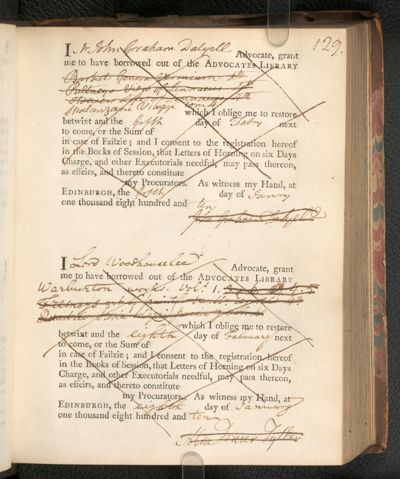 129.
I, Mr John Graham Dalyell Advocate, grant
me to have borrowed out of the ADVOCATES LIBRARY
Genera
Pultneys View of
Spalanzani
which I oblige me to restore
betwixt and the fifth day of Febry next
to come, or the Sum of
in case of Failzie; and I consent to the registration hereof
in the Books of Session, that Letters of Horning on six Days
Charge, and other Executorials needful, may pass thereon,
as effeirs, and thereto constitute
my Procurators. As witness my Hand, at
EDINBURGH, the fifth day of Janry
one thousand eight hundred and ten
John Graham Dalyell
I, Lord Woodhouselee Advocate, grant
me to have borrowed out of the ADVOCATES LIBRARY
Warburton works. Vol. 1.
which I oblige me to restore
betwixt and the eighth day of February next
to come, or the Sum of
in case of Failzie; and I consent to the registration hereof
in the Books of Session, that Letters of Horning on six Days
Charge, and other Executorials needful, may pass thereon,
as effeirs, and thereto constitute
my Procurators. As witness my Hand, at
EDINBURGH, the eighth day of January
one thousand eight hundred and ten
Fraser Tytler